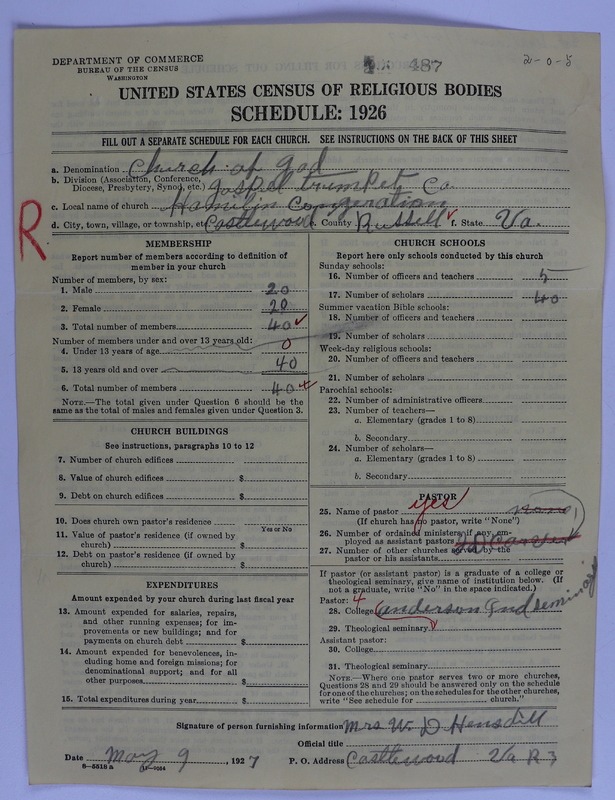 DEPARTMENT OF COMMERCE
BUREAU OF THE CENSUS
WASHINGTON
487
2-0-5
UNITED STATES CENSUS OF RELIGIOUS BODIES
SCHEDULE: 1926
FILL OUT A SEPARATE SCHEDULE FOR EACH CHURCH. SEE INSTRUCTIONS ON THE BACK OF THIS SHEET
a. Denomination Church of God
b. Division (Association, Conference, Diocese, Presbytery, Synod, etc.) Gospel Trumpet Co
c. Local name of church Hamlin Congeration
d. City, town, village, or township, etc. Castlewood e. County Russell f. State Va.
R
MEMBERSHIP
Report number of members according to definition of
member in your church
Number of members, by sex:
1. Male 20
2. Female 20
3. Total number of members 40
Number of members under and over 13 years old:
4. Under 13 years of age 0
5. 13 years old and over 40
6. Total number of members 40
NOTE.—The total given under Question 6 should be the
same as the total of males and females given under Question 3.
CHURCH BUILDINGS
See instructions, paragraphs 10 to 12
7. Number of church edifices
8. Value of church edifices $
9. Debt on church edifices $
10. Does church own pastor's residence
Yes or No
11. Value of pastor's residence (if owned by
church) $
12. Debt on pastor's residence (if owned by
church) $
EXPENDITURES
Amount expended by your church during last fiscal year
13. Amount expended for salaries, repairs,
and other running expenses; for im-
provements or new buildings; and for
payments on church debt $
14. Amount expended for benevolences, in-
cluding home and foreign missions; for
denominational support; and for all
other purposes $
15. Total expenditures during year $
CHURCH SCHOOLS
Report here only schools conducted by this church
Sunday schools:
16. Number of officers and teachers 5
17. Number of scholars 40
Summer vacation Bible schools:
18. Number of officers and teachers
19. Number of scholars
Week-day religious schools:
20. Number of officers and teachers
21. Number of scholars
Parochial schools:
22. Number of administrative officers
23. Number of teachers—
a. Elementary (grades 1 to 8)
b. Secondary
24. Number of scholars—
a. Elementary (grades 1 to 8)
b. Secondary
PASTOR
25. Name of pastor yes none
(If church has no pastor, write "None")
26. Number of ordained ministers, if any, em-
ployed as assistant pastors
27. Number of other churches served by the
pastor or his assistants
If pastor (or assistant pastor) is a graduate of a college or
theological seminary, give name of institution below. (If
not a graduate, write "No" in the space indicated.)
Pastor: 4
28. College Anderson Ind seminary
29. Theological seminary
Assistant pastor:
30. College
31. Theological seminary
NOTE.—Where one pastor serves two or more churches,
Questions 28 and 29 should be answered only on the schedule
for one of the churches; on the schedules for the other churches,
write "See schedule for church."
Signature of person furnishing information Mrs W. D Hensdill
Official title
Date May 9, 1927 P. O. Address Castlewood Va R 3
8-5518 a